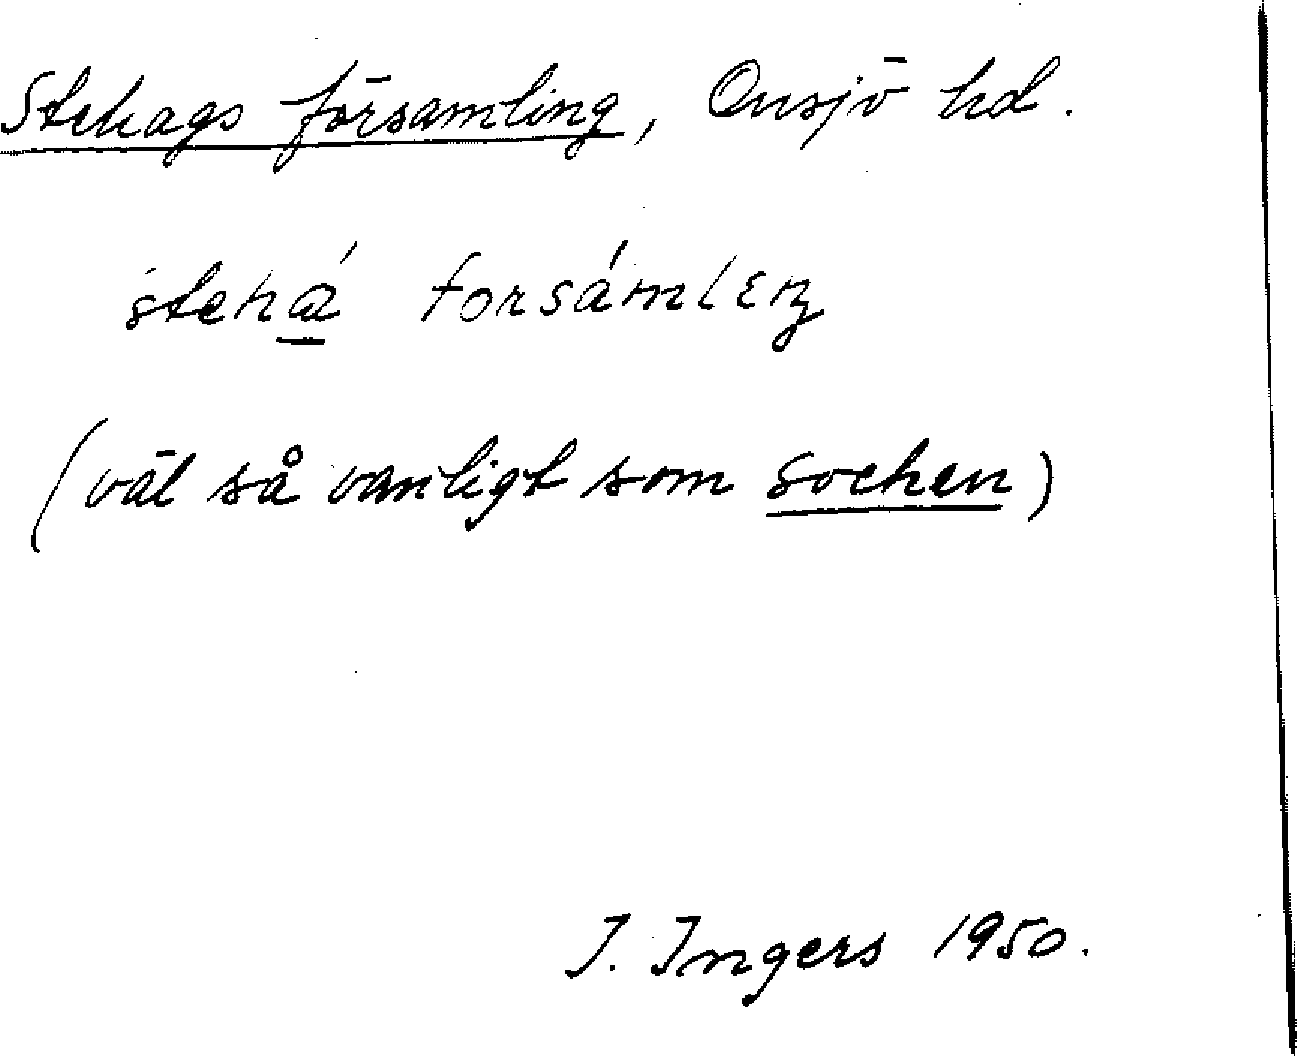 Stehags församling, Onsjö hd.
stehá forsámleŋ
(väl så vanligt som socken)
I. Ingers 1950.